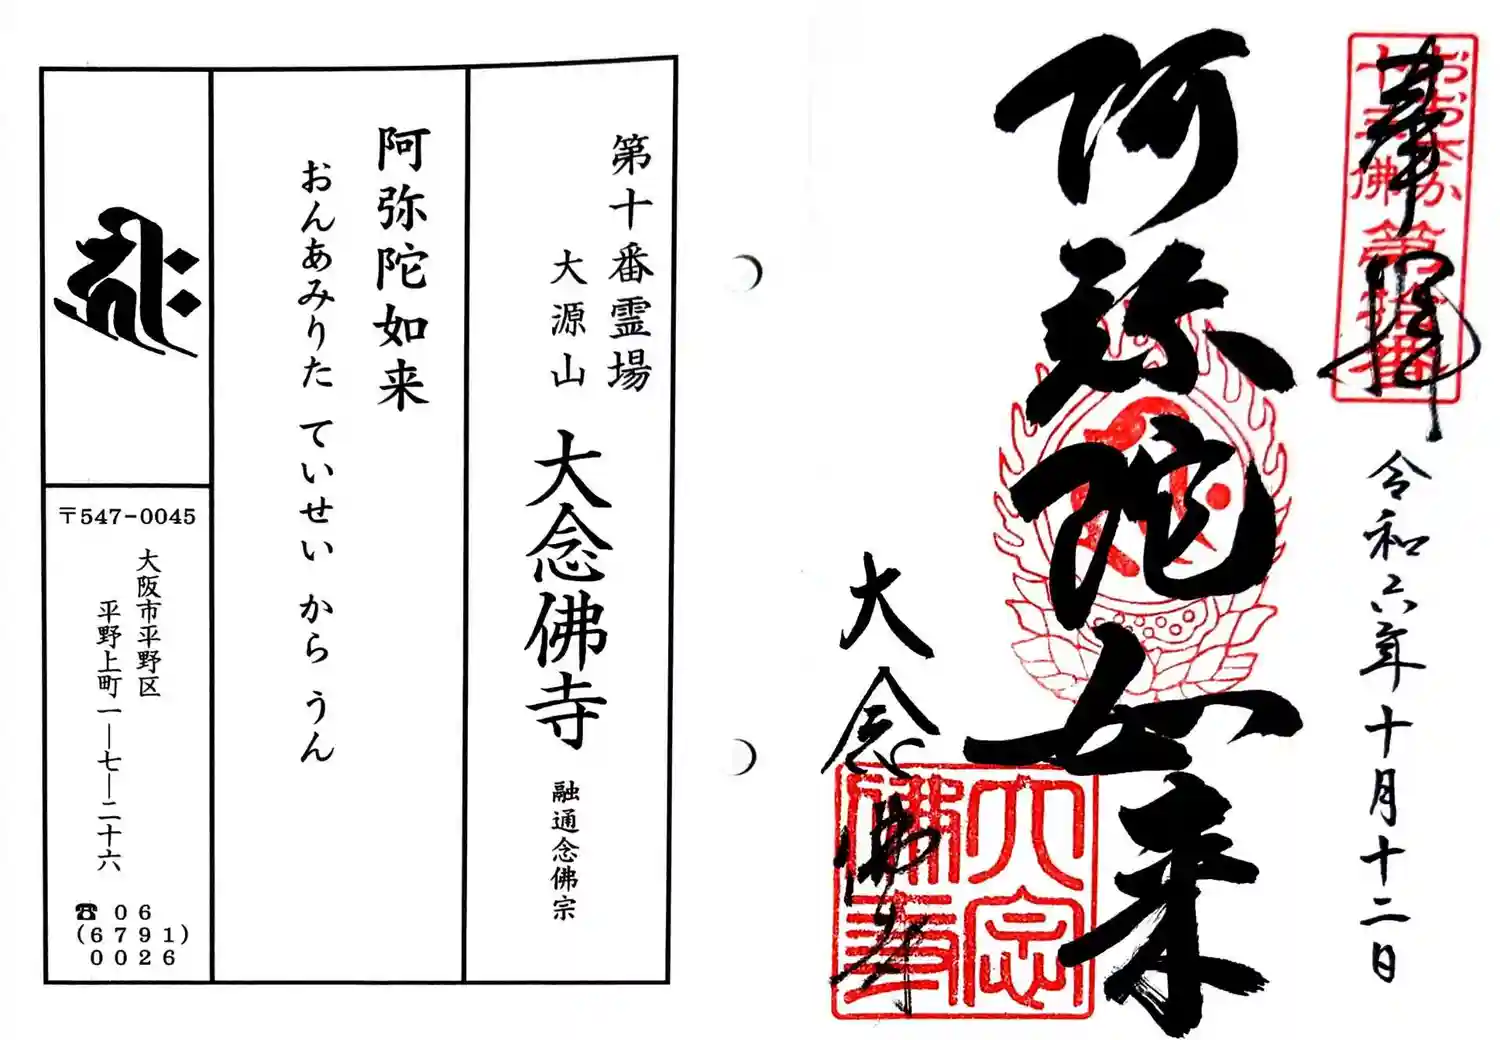 奉拝
おおさか
十三佛
第拾番
令和六年十月十二日
阿弥陀如来
大念佛寺
大念
佛寺
第十番霊場
大源山
大念佛寺
融通念佛宗
阿弥陀如来
おんあみりた ていせい から うん
〒547-0045
大阪市平野区
平野上町一―七―二十六
☎ 06
(6791)
0026